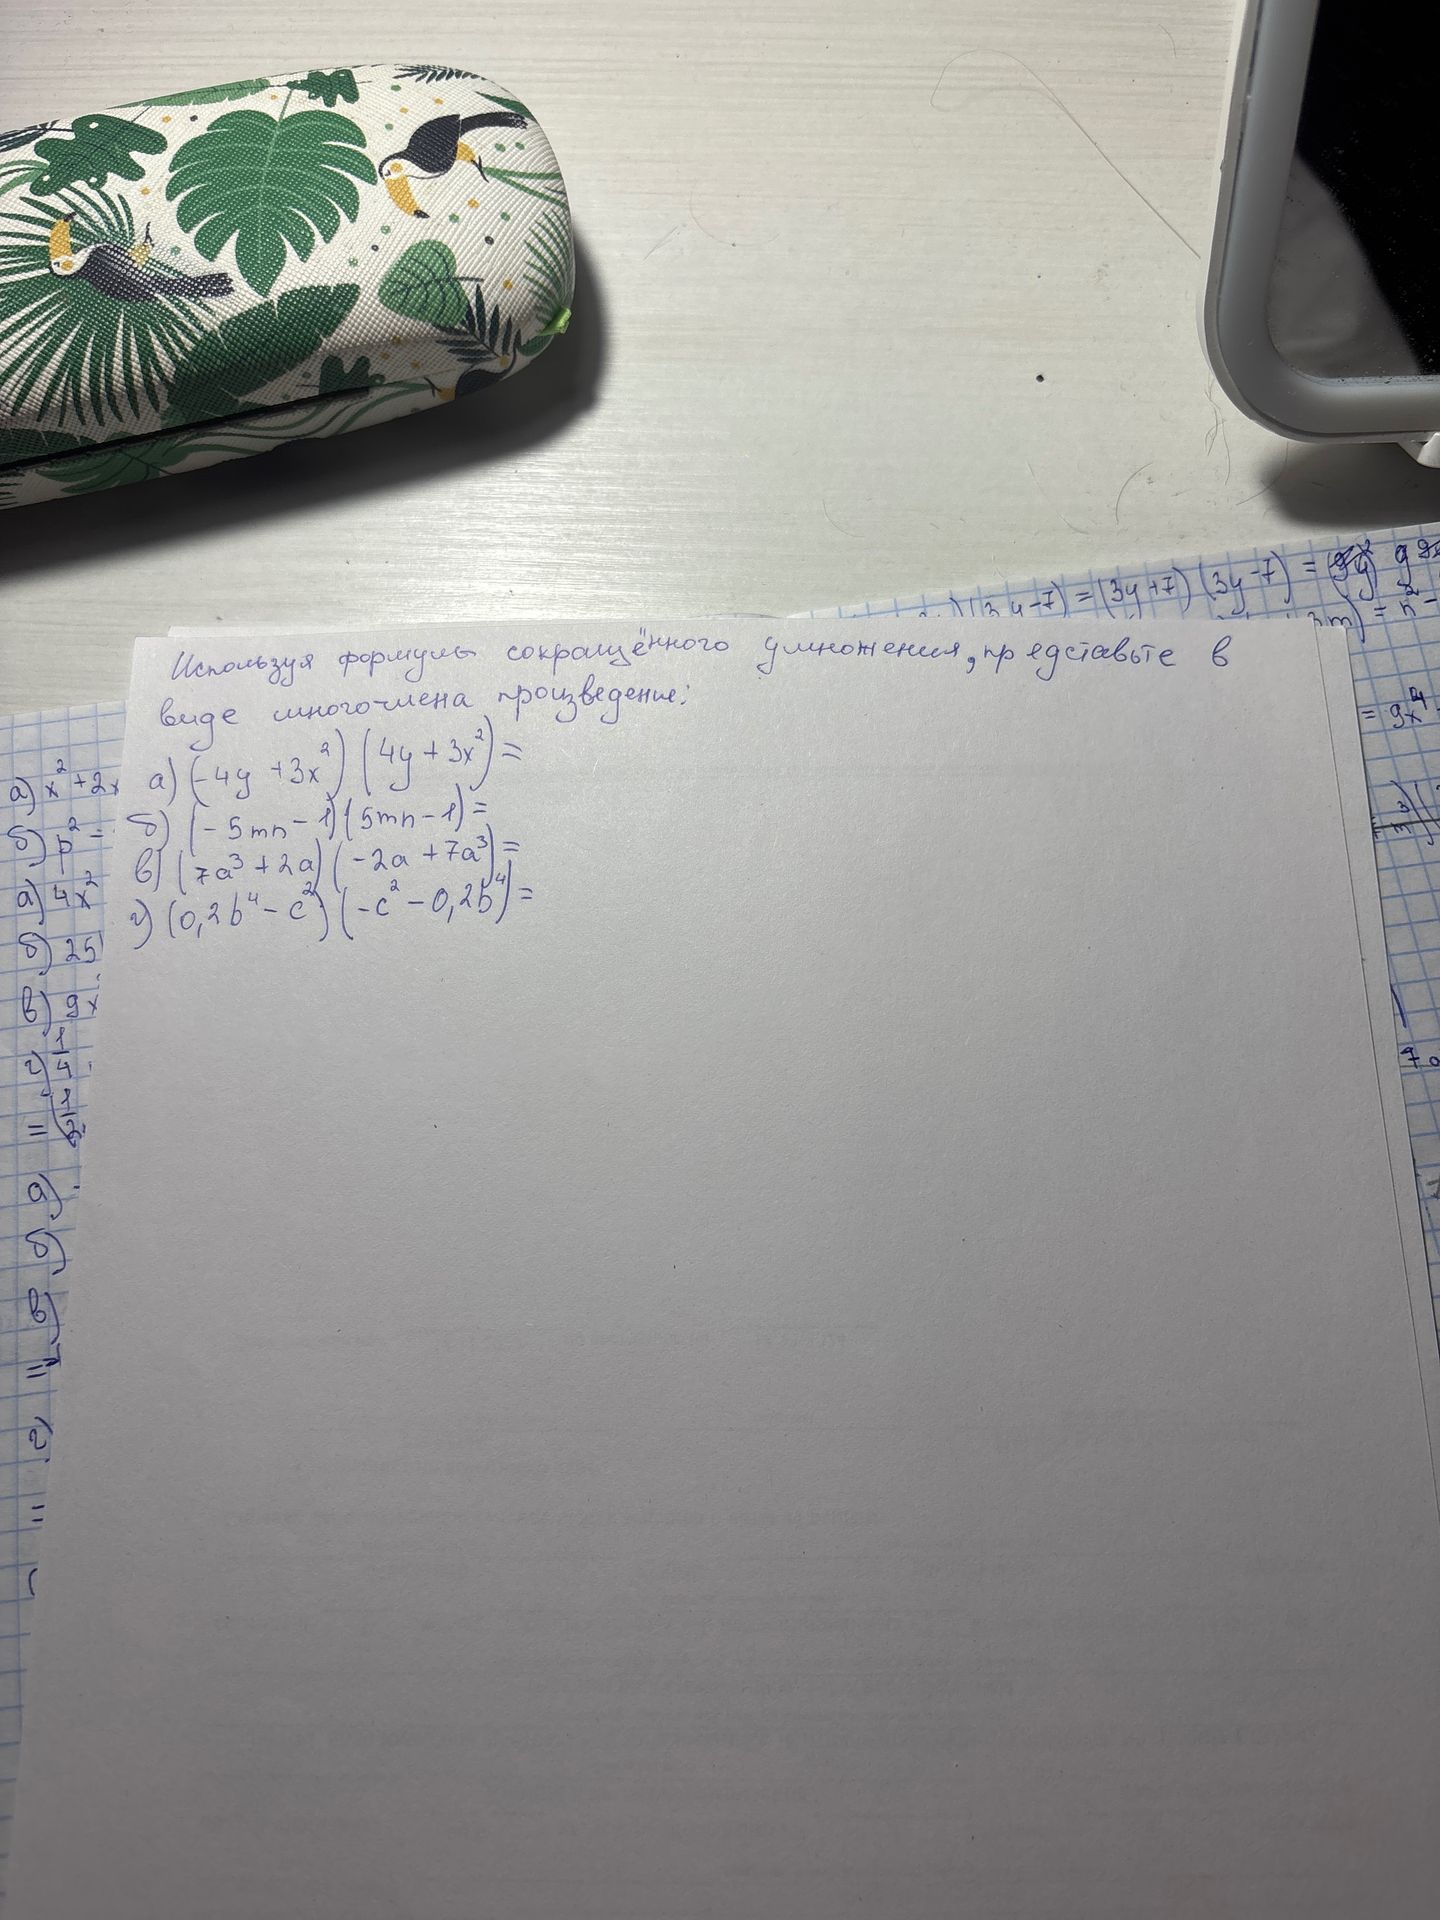 Используя формулы сокращённого умножения, представьте в
виде многочлена произведение:
а) (-4y + 3x²) (4y + 3x²) =
б) (-5mn - 1) (5mn - 1) =
в) (7a³ + 2a) (-2a + 7a³) =
г) (0,2b⁴ - c²) (-c² - 0,2b⁴) =
3y-7) = (3y+7) (3y-7) =
= n² -
= 9x⁴
а) x² + 2x
б) p² -
а) 4x²
б) 25
в) 9x
г) 1/4
= (1/2
а)
б)
в)
=
г)
=